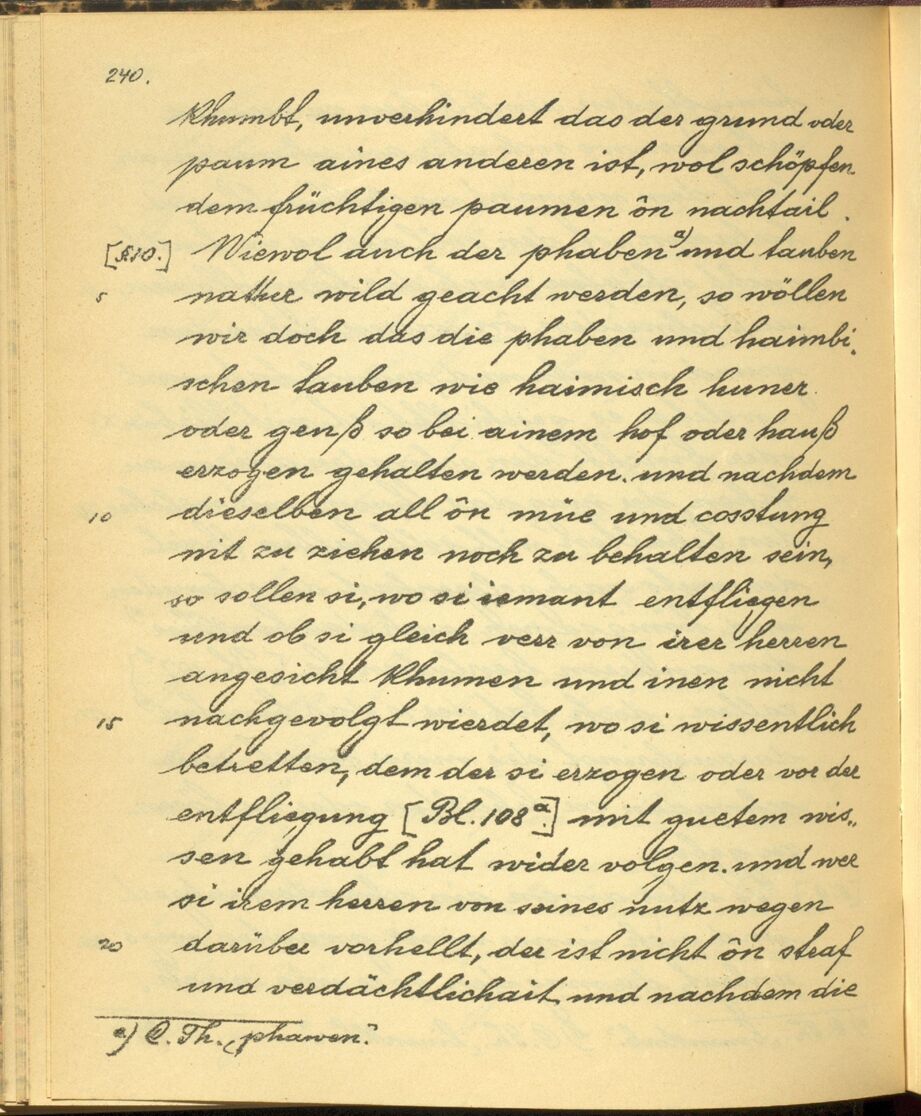 240.
khumbt, unverhindert das der grund oder
paum aines anderen ist, wol schöpfen
dem früchtigen paumen ôn nachtail.
[§10.] Wiewol auch der phaben a) und tauben
5 nathur wild geacht werden, so wöllen
wir doch das die phaben und haimbi„
schen tauben wie haimisch huner
oder genß so bei ainem hof oder hauß
erzogen gehalten werden. und nachdem
10 dieselben all ôn müe und cosstung
nit zu ziehen noch zu behalten sein,
so sollen si, wo si iemant entfliegen
und ob si gleich verr von irer herren
angesicht khumen und inen nicht
15 nachgevolgt wierdet, wo si wissentlich
betretten, dem der si erzogen oder vor der
entfliegung [Bl. 108a.] mit guetem wis„
sen gehabt hat wider volgen. und wer
si irem herren von seines nutz wegen
20 darüber vorhellt, der ist nicht ôn straf
und verdächtlichait und nachdem die
a) C. Th. „phawen“.